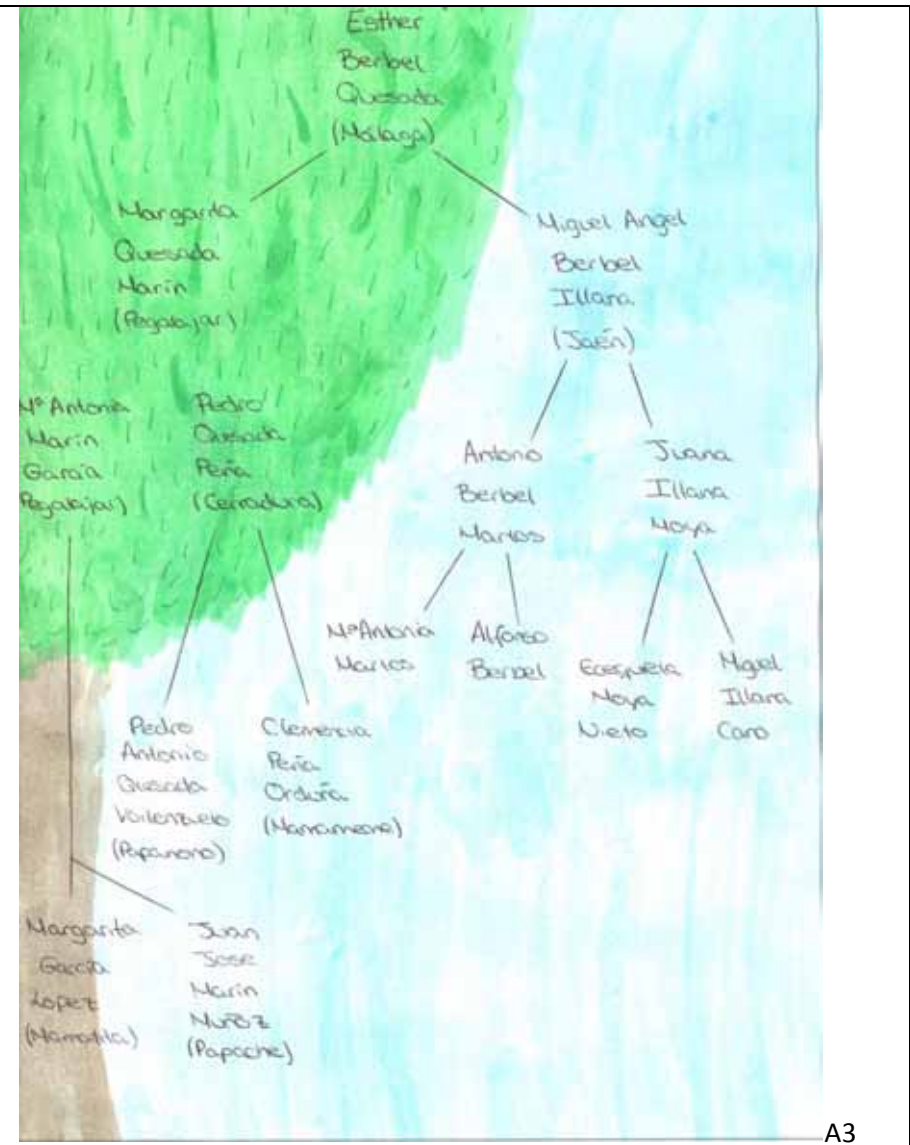 Esther
Berbel
Quesada
(Málaga)
Margarita
Quesada
Marín
(Pegalajar)
Miguel Angel
Berbel
Illana
(Jaén)
Mª Antonia
Marín
García
Pegalajar)
Pedro
Quesada
Peña
(Cerradura)
Antonio
Berbel
Martos
Juana
Illana
Moya
MªAntonia
Martos
Alfonso
Berbel
Moya
Nieto
Miguel
Illana
Cano
Pedro
Antonio
Quesada
Clemencia
Peña
Orduña
Margarita
García
Lopez
Juan
Jose
Marín
Muñoz
(Papoche)
A3